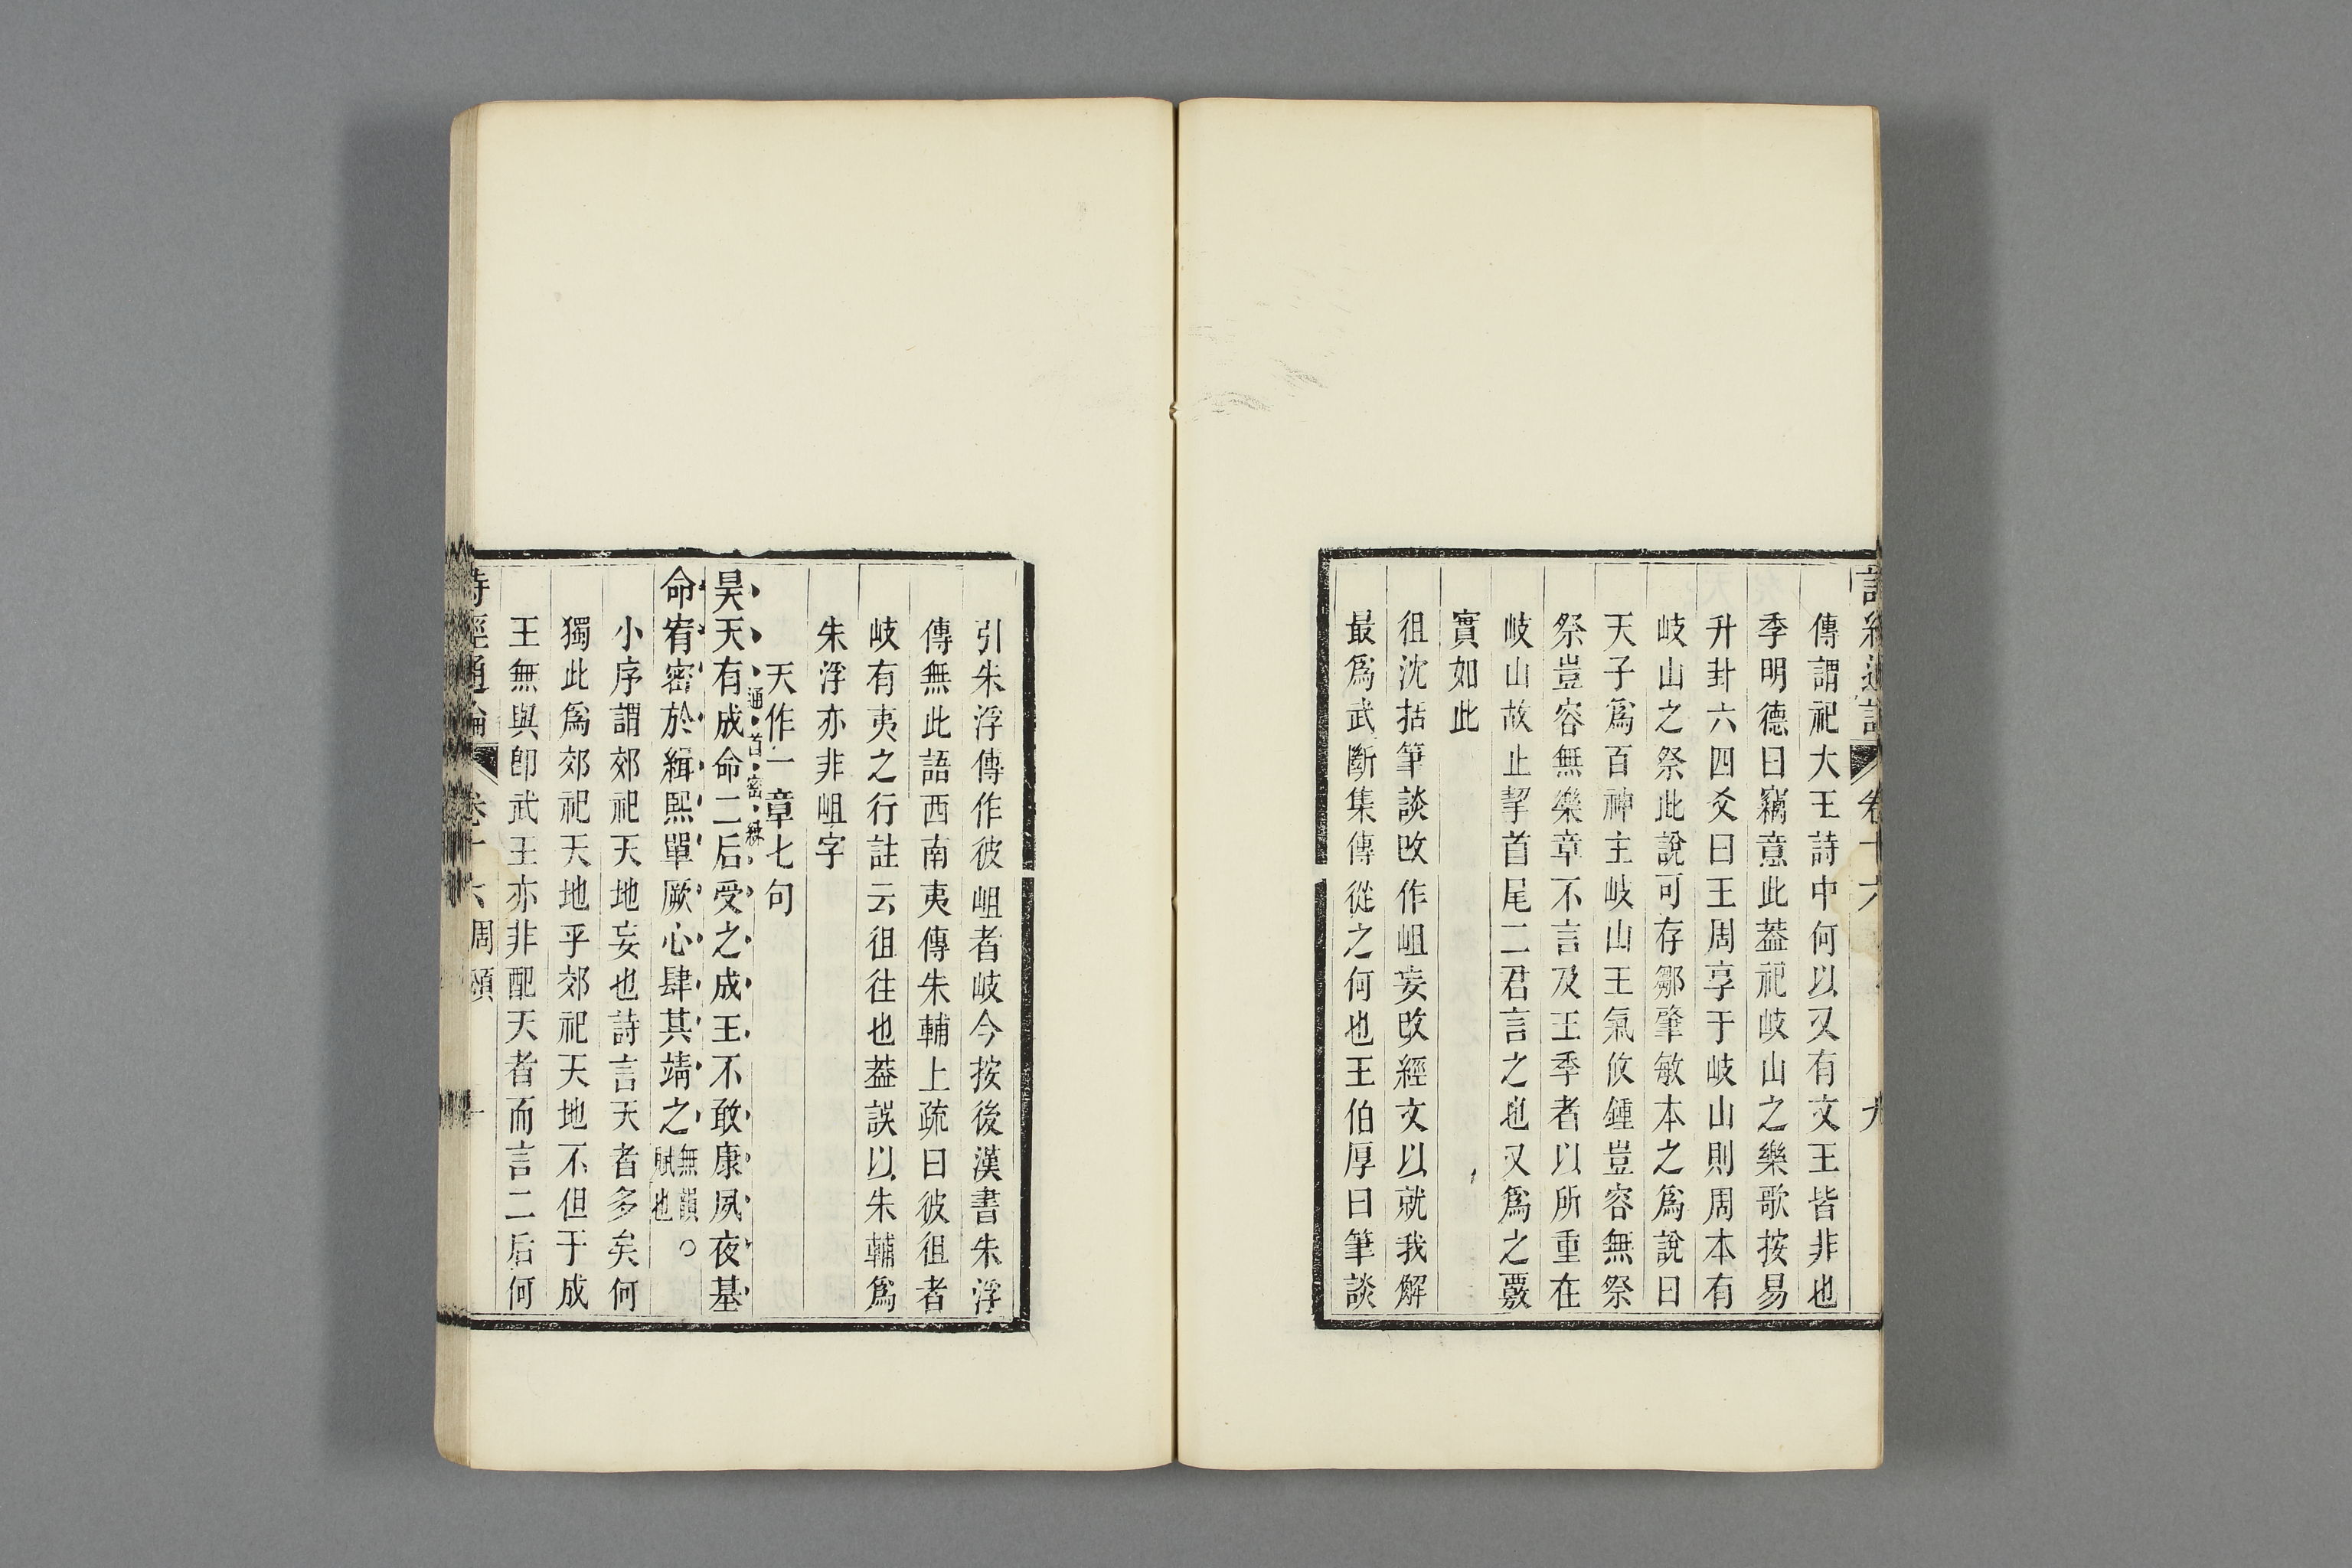 詩經通論 卷十六 九
傳謂祀大王詩中何以又有文王皆非也
季明德曰竊意此葢祀岐山之樂歌按易
升卦六四爻曰王周享于岐山則周本有
岐山之祭此說可存鄒肇敏本之爲說曰
天子爲百神主岐山王氣攸鍾豈容無祭
祭豈容無樂章不言及王季者以所重在
岐山故止挈首尾二君言之也又爲之覈
實如此
徂沈括筆談改作岨妄改經文以就我解
最爲武斷集傳從之何也王伯厚曰筆談
引朱浮傳作彼岨者岐今按後漢書朱浮
傳無此語西南夷傳朱輔上疏曰彼徂者
岐有夷之行註云徂往也葢誤以朱輔爲
朱浮亦非岨字
天作一章七句
通首密練
昊天有成命二后受之成王不敢康夙夜基
命宥密於緝熙單厥心肆其靖之無韻○賦也
小序謂郊祀天地妄也詩言天者多矣何
獨此爲郊祀天地乎郊祀天地不但于成
王無與卽武王亦非配天者而言二后何
詩經通論 卷十六 周頌